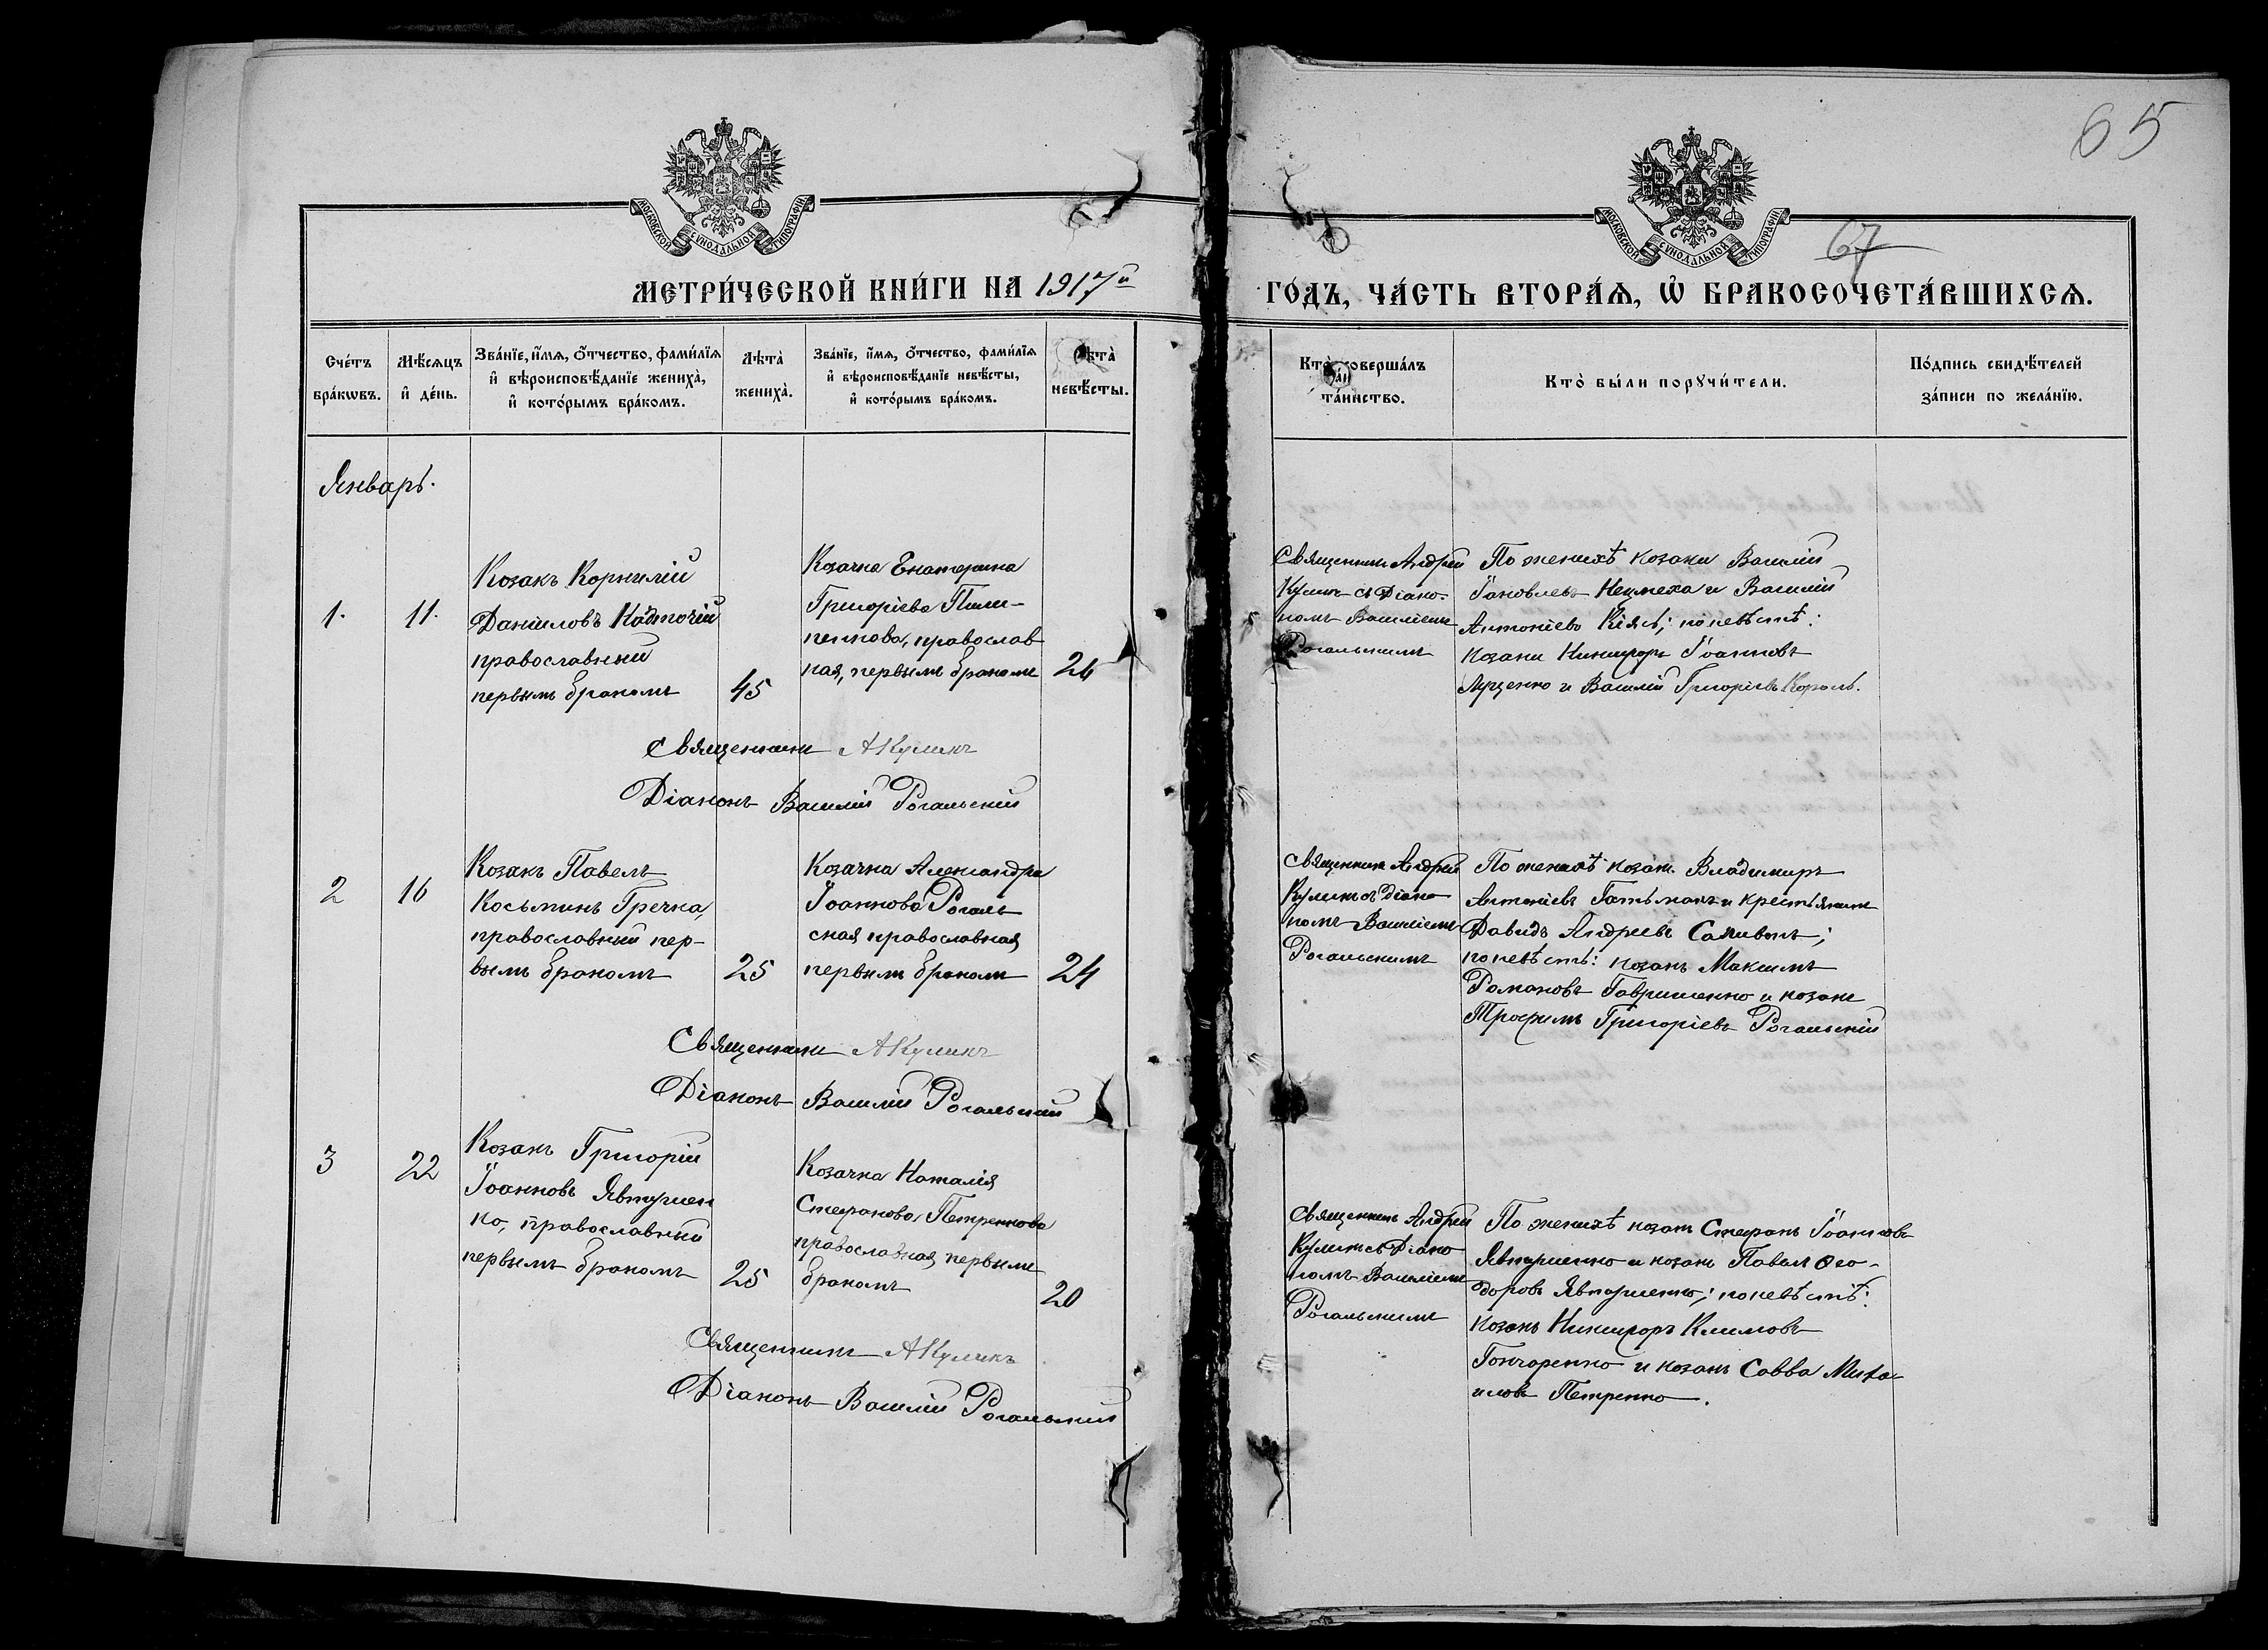 65
67
МОСКОВСКОЙ СѴНОДАЛЬНОЙ ТИПОГРАФІИ
МОСКОВСКОЙ СѴНОДАЛЬНОЙ ТИПОГРАФІИ
МЕТРИ́ЧЕСКОЙ КНИ́ГИ НА 1917й
ГО́ДЪ, ЧА́СТЬ ВТОРА́Ѧ, Ѡ҆ БРАКОСОЧЕТА́ВШИХСѦ.
Сче́тъ
бра́кѡвъ.
Мѣ́сѧцъ
и҆ де́нь.
Зва́нїе, и҆́мѧ, ѻ҆́тчество, фами́лїѧ
и҆ вѣроисповѣ́данїе жениха̀,
и҆ кото́рымъ бра́комъ.
Лѣта̀
жениха̀.
Зва́нїе, и҆́мѧ, ѻ҆́тчество, фами́лїѧ
и҆ вѣроисповѣ́данїе невѣ́сты,
и҆ кото́рымъ бра́комъ.
Лѣта̀
невѣ́сты.
Кто̀ соверша́лъ
та́инство.
Кто̀ бы́ли порꙋчи́тели.
По́дпись свидѣ́телей
за́писи по жела́нїю.
Январь.
1.
11.
Козакъ Корнилій
Даниловъ
православный
первымъ бракомъ
45
Козачка Екатерина
Григоріева Пили-
пенкова, православ
ная, первымъ бракомъ
24
Священникъ Андрей
Куликъ съ Діако-
номъ Василіемъ
Рогальскимъ
По женихѣ козаки Василій
Іаковлевъ и Василій
Антоніевъ по невѣстѣ:
козаки Никифоръ Іоанновъ
Луценко и Василій Григоріевъ Король.
Священникъ АКуликъ
Діаконъ Василій Рогальскій
2
16
Козакъ Павелъ
Косьминъ Гречка,
православный пер-
вымъ бракомъ
25
Козачка Александра
Іоаннова Рогаль
ская православная
первымъ бракомъ
24
Священникъ Андрей
Куликъ съ Діако
номъ Василіемъ
Рогальскимъ
По женихѣ козакъ Владимиръ
Антоніевъ Гатьманъ и крестьянинъ
Давидъ Андреевъ
по невѣстѣ: козакъ Максимъ
Романовъ Гавришенко и козакъ
Трофимъ Григоріевъ Рогальскій
Священникъ АКуликъ
Діаконъ Василій Рогальскій
3
22
Козакъ Григорій
Іоанновъ Явтушен
ко, православный
первымъ бракомъ
25
Козачка Наталія
Стефанова Петренкова
православная первымъ
бракомъ
20
Священникъ Андрей
Куликъ съ Діако
номъ Василіемъ
Рогальскимъ
По женихѣ козакъ Стефанъ Іоанновъ
Явтушенко и козакъ Павелъ Ѳео-
доровъ Явтушенко; по невѣстѣ:
козакъ Никифоръ Климовъ
Гончаренко и козакъ Савва Миха-
иловъ Петренко.
Священникъ АКуликъ
Діаконъ Василій Рогальскій